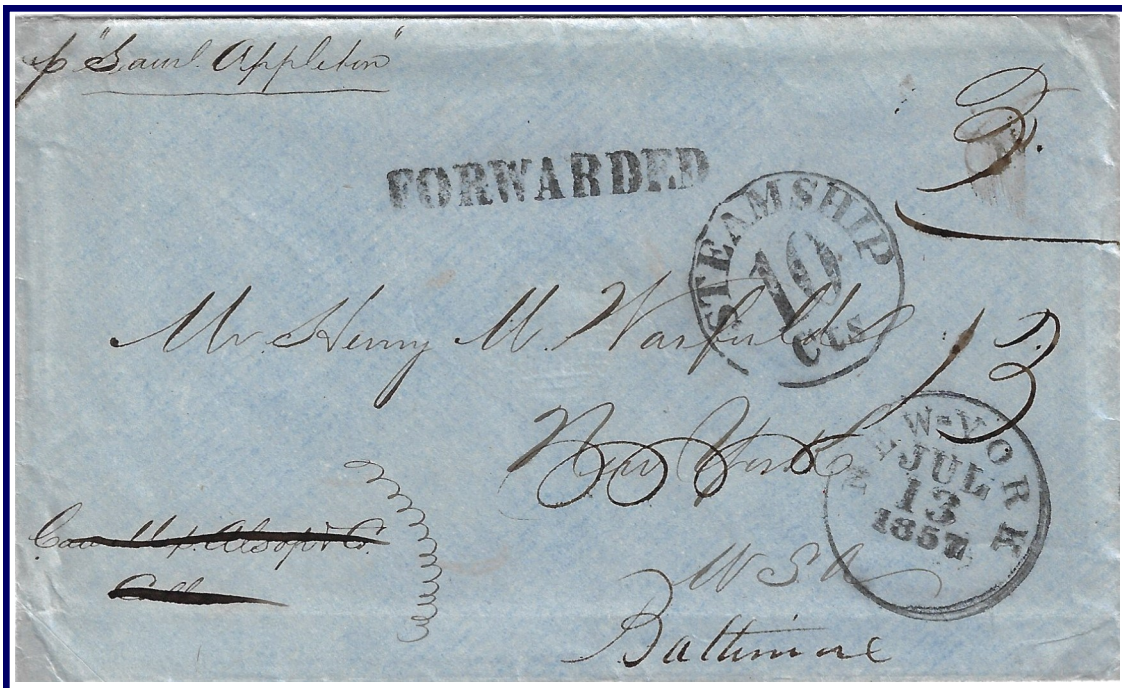 p "Saml. Appleton"
3.
FORWARDED
STEAMSHIP
10
Cts
Mr Henry M. Warfield
13
New York
NEW-YORK
JUL
13
1857
Alsop & Co.
U S A
Baltimore